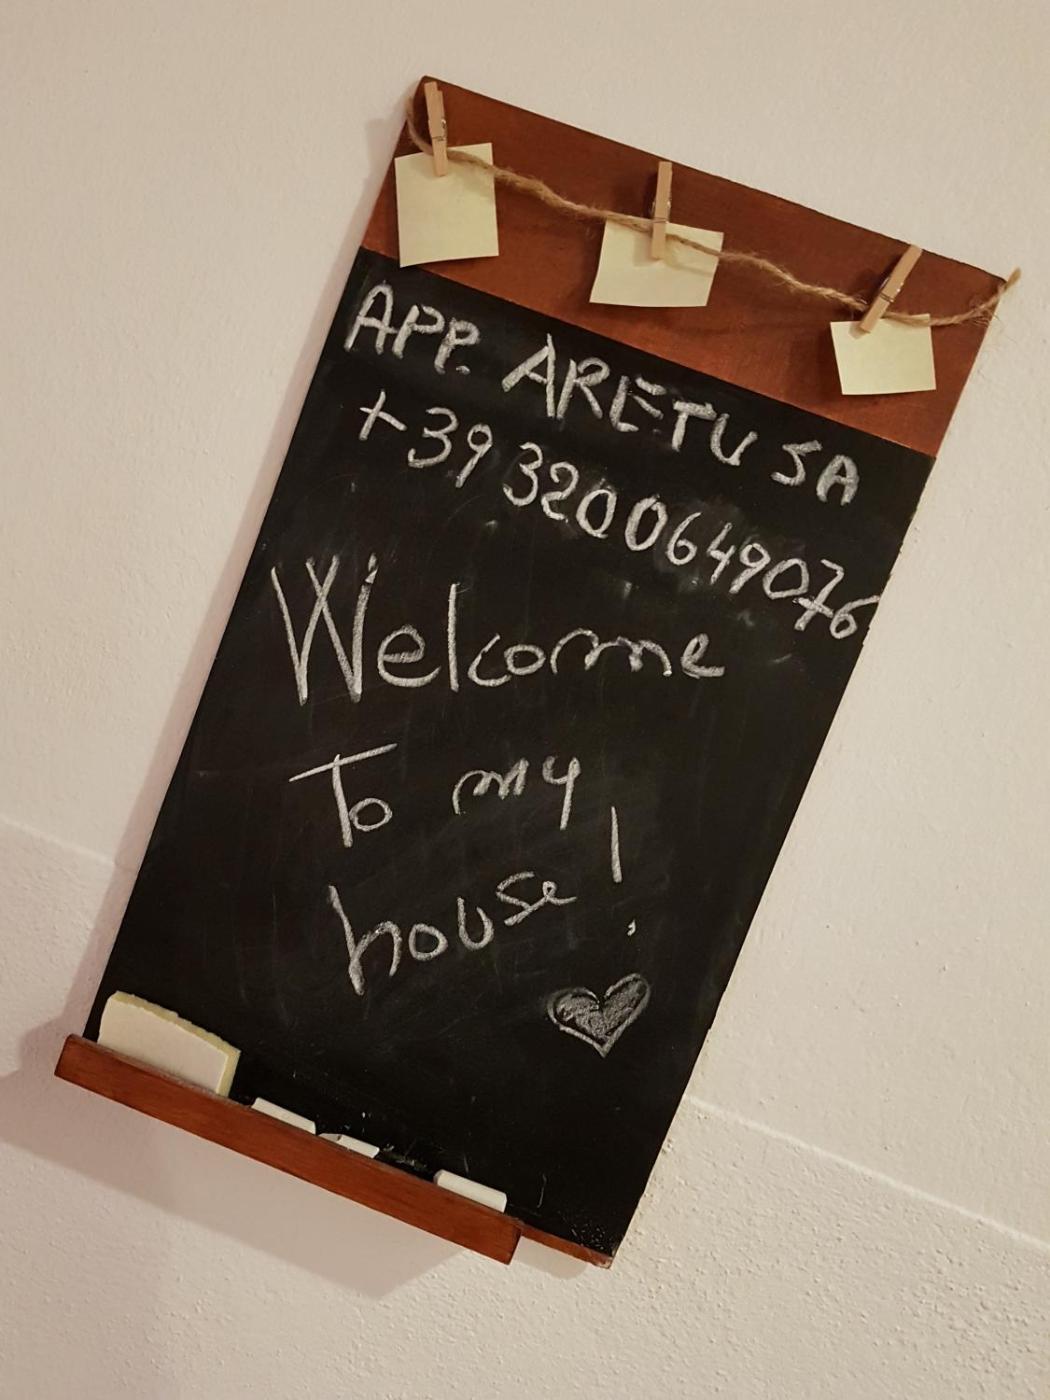 APP. ARETUSA
+39 3200649076
Welcome
To my
house!